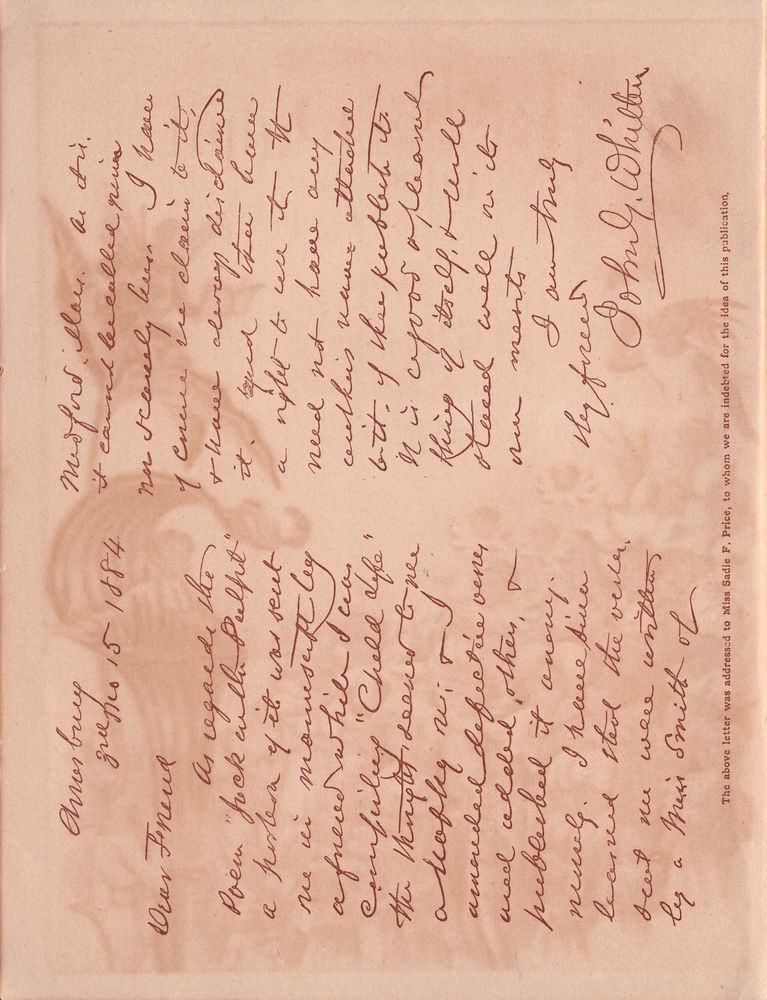 Amesbury
3rd Mo 15 1884
Dear Friend
As regards the
Poem "Jack in the Pulpit"
a portion of it was sent
me in manuscript by
a friend while I was
compiling "Child Life"
The thought seemed to me
a happy one & I
amended defective verses
and added others, &
published it anony-
mously. I have since
learned that the verses
sent me were written
by a Miss Smith of
Medford, Mass. As it is
it cannot be called mine
nor scarcely hers. I have
of course no claim to it,
& have always disclaimed
it. and thee have
a right to use it. It
need not have any
author's name attached
to it, if thee publish it.
It is a good & pleasant
thing of itself, & will
stand well on its
own merits
I am truly
thy friend
John G. Whittier
The above letter was addressed to Miss Sadie F. Price, to whom we are indebted for the idea of this publication.